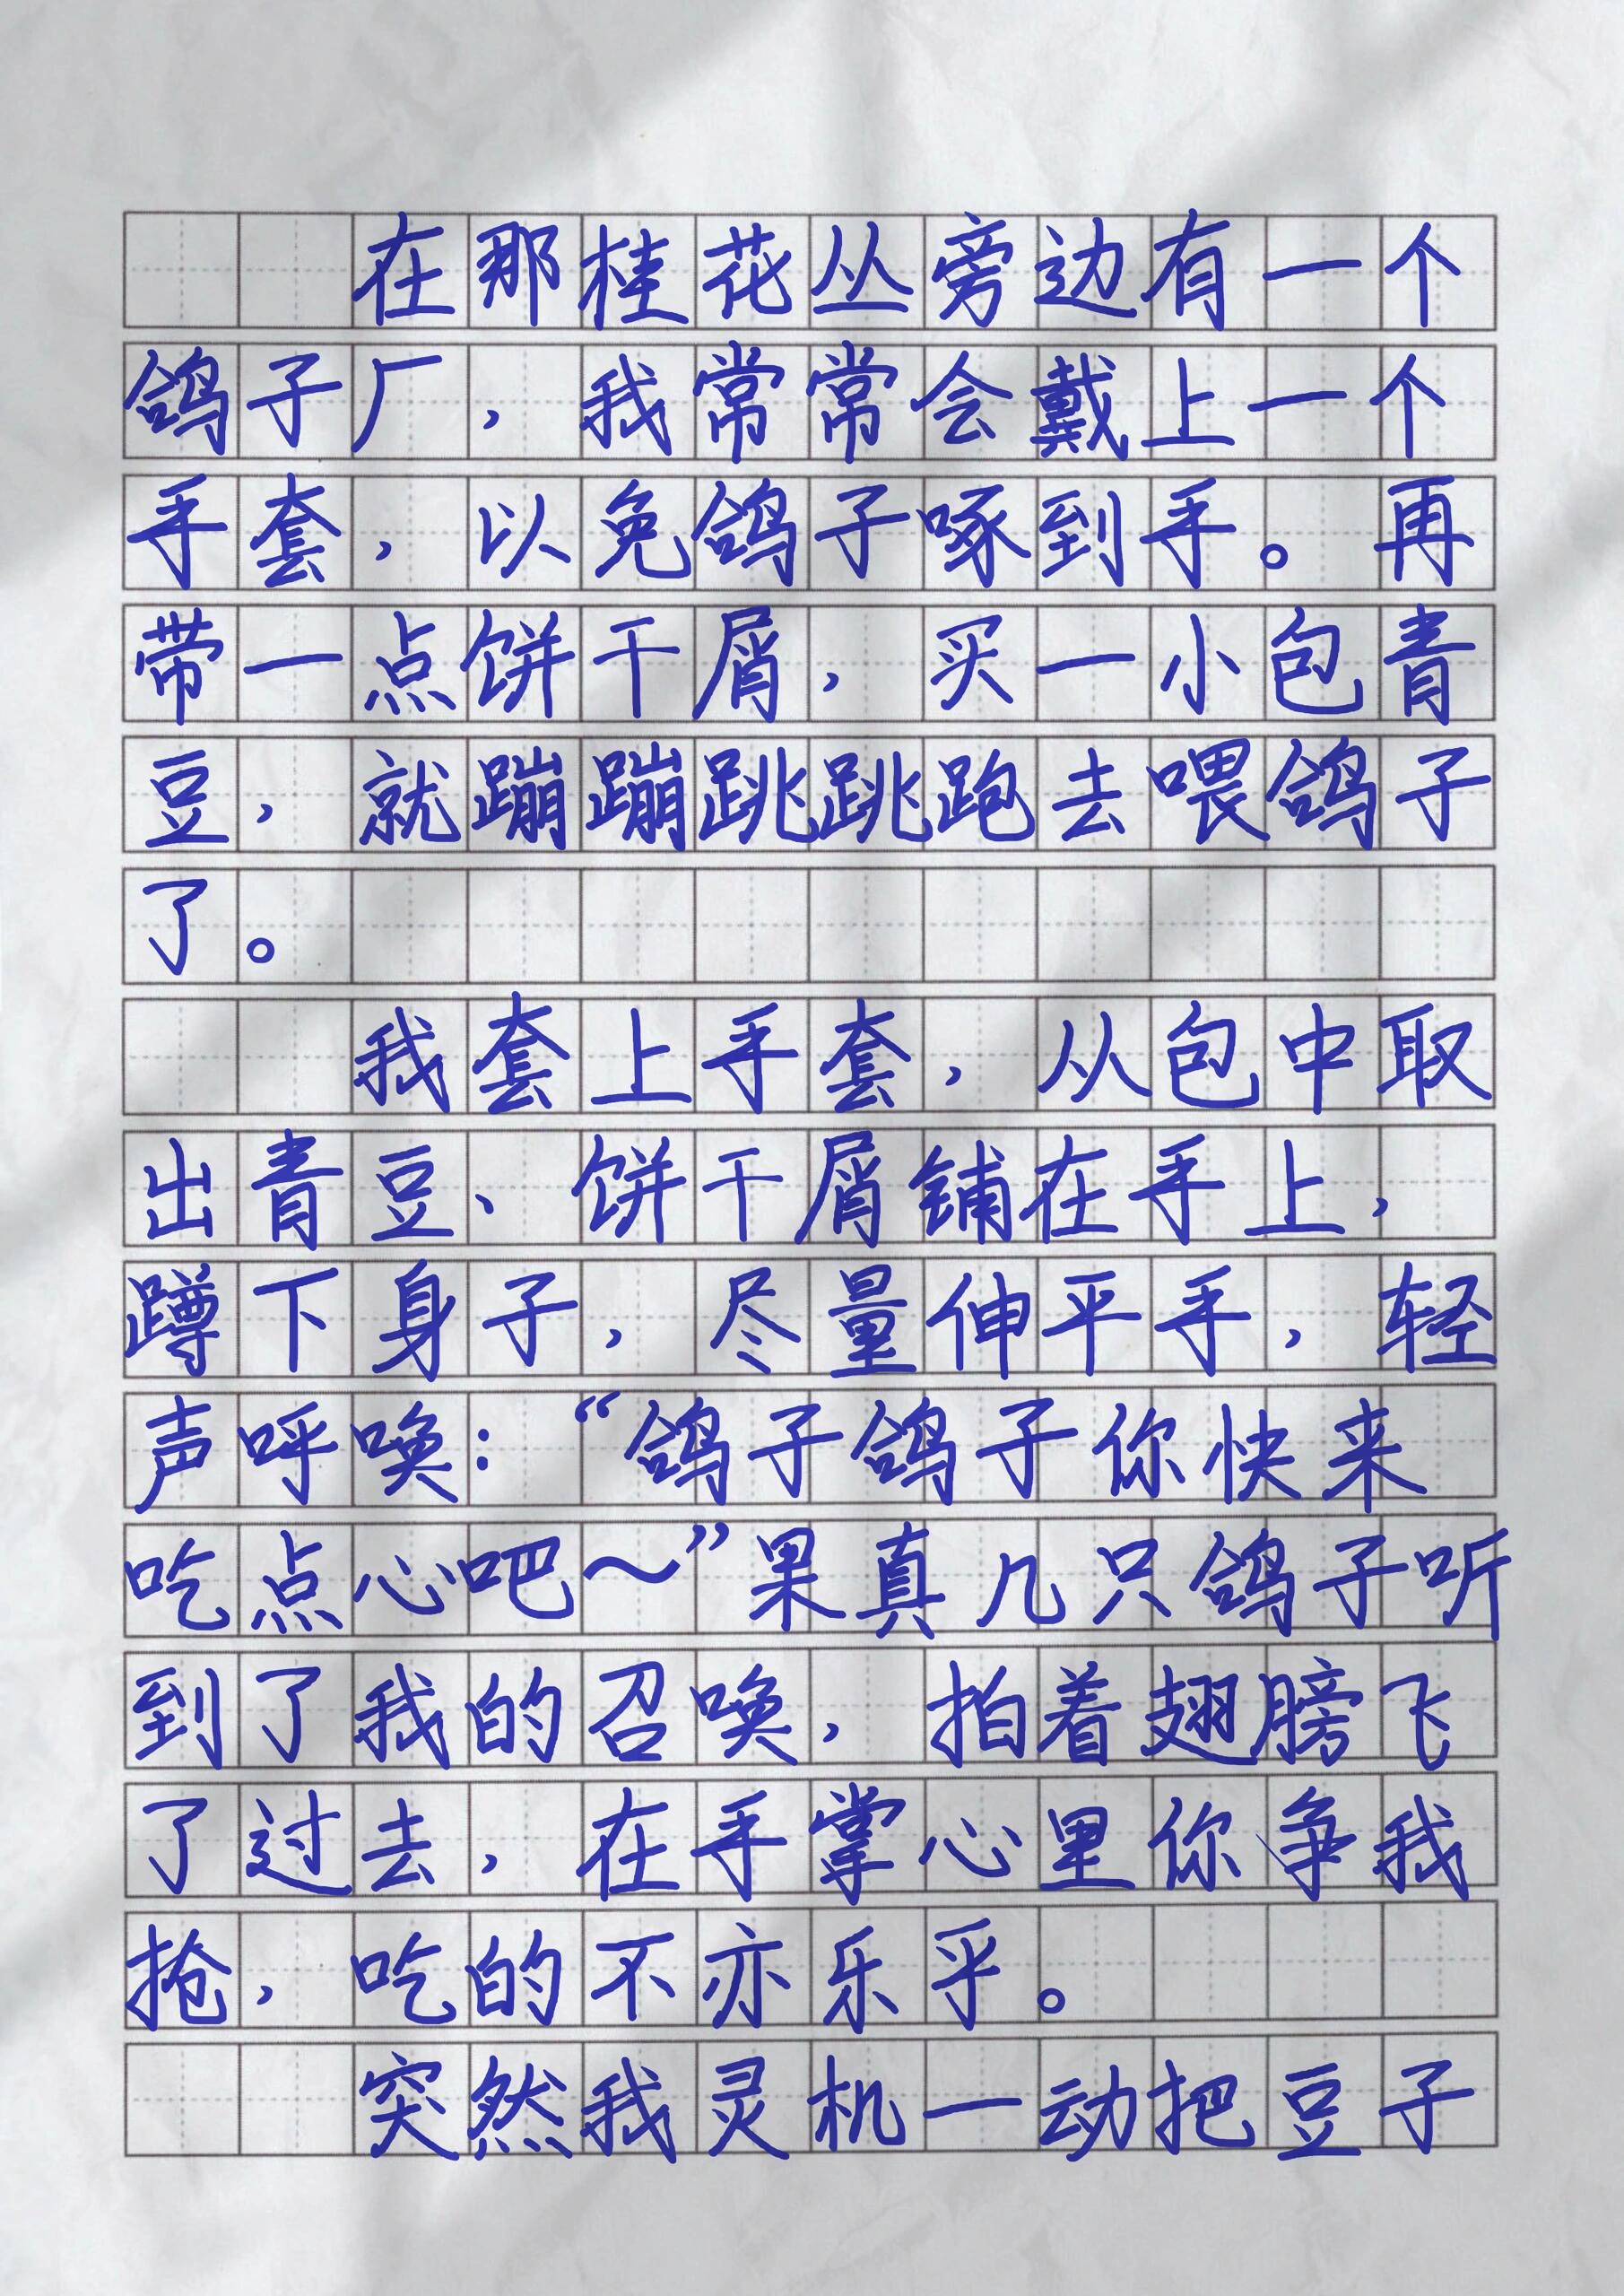 在那桂花丛旁边有一个
鸽子厂，我常常会戴上一个
手套，以免鸽子啄到手。再
带一点饼干屑，买一小包青
豆，就蹦蹦跳跳跑去喂鸽子
了。
我套上手套，从包中取
出青豆、饼干屑铺在手上，
蹲下身子，尽量伸平手，轻
声呼唤：“鸽子鸽子你快来
吃点心吧～”果真几只鸽子听
到了我的召唤，拍着翅膀飞
了过去，在手掌心里你争我
抢，吃的不亦乐乎。
突然我灵机一动把豆子